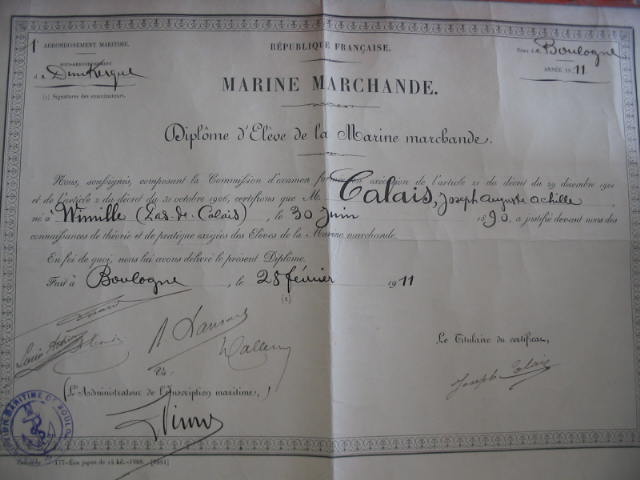 1er ARRONDISSEMENT MARITIME.
RÉPUBLIQUE FRANÇAISE.
de Boulogne
SOUS-ARRONDISSEMENT
de Dunkerque
MARINE MARCHANDE.
ANNÉE 1911
(1) Signatures des examinateurs.
Diplôme d'Élève de la Marine marchande.
Nous, soussignés, composant la Commission d'examen formée en exécution de l'article 21 du décret du 29 décembre 1901
et de l'article 2 du décret du 31 octobre 1906, certifions que M. Calais, Joseph Auguste Achille
né à Wimille (Pas-de-Calais), le 30 Juin 1893, a justifié devant nous des
connaissances de théorie et de pratique exigées des Élèves de la Marine marchande.
En foi de quoi, nous lui avons délivré le présent Diplôme.
Fait à Boulogne, le 28 février 1911
(1)
Le Titulaire du certificat,
Joseph Calais
(L'Administrateur de l'Inscription maritime,)